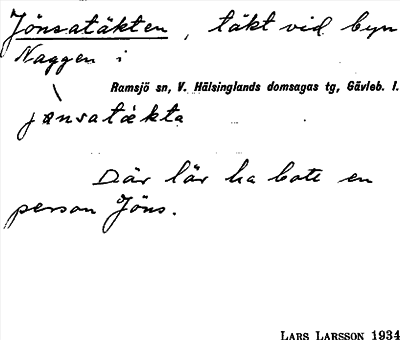 Jönsatäkten, täkt vid byn
Naggen i
Ramsjö sn, V. Hälsinglands domsagas tg, Gävleb. l.
jønsatäkta
Där lär ha bott en
person Jöns.
LARS LARSSON 1934